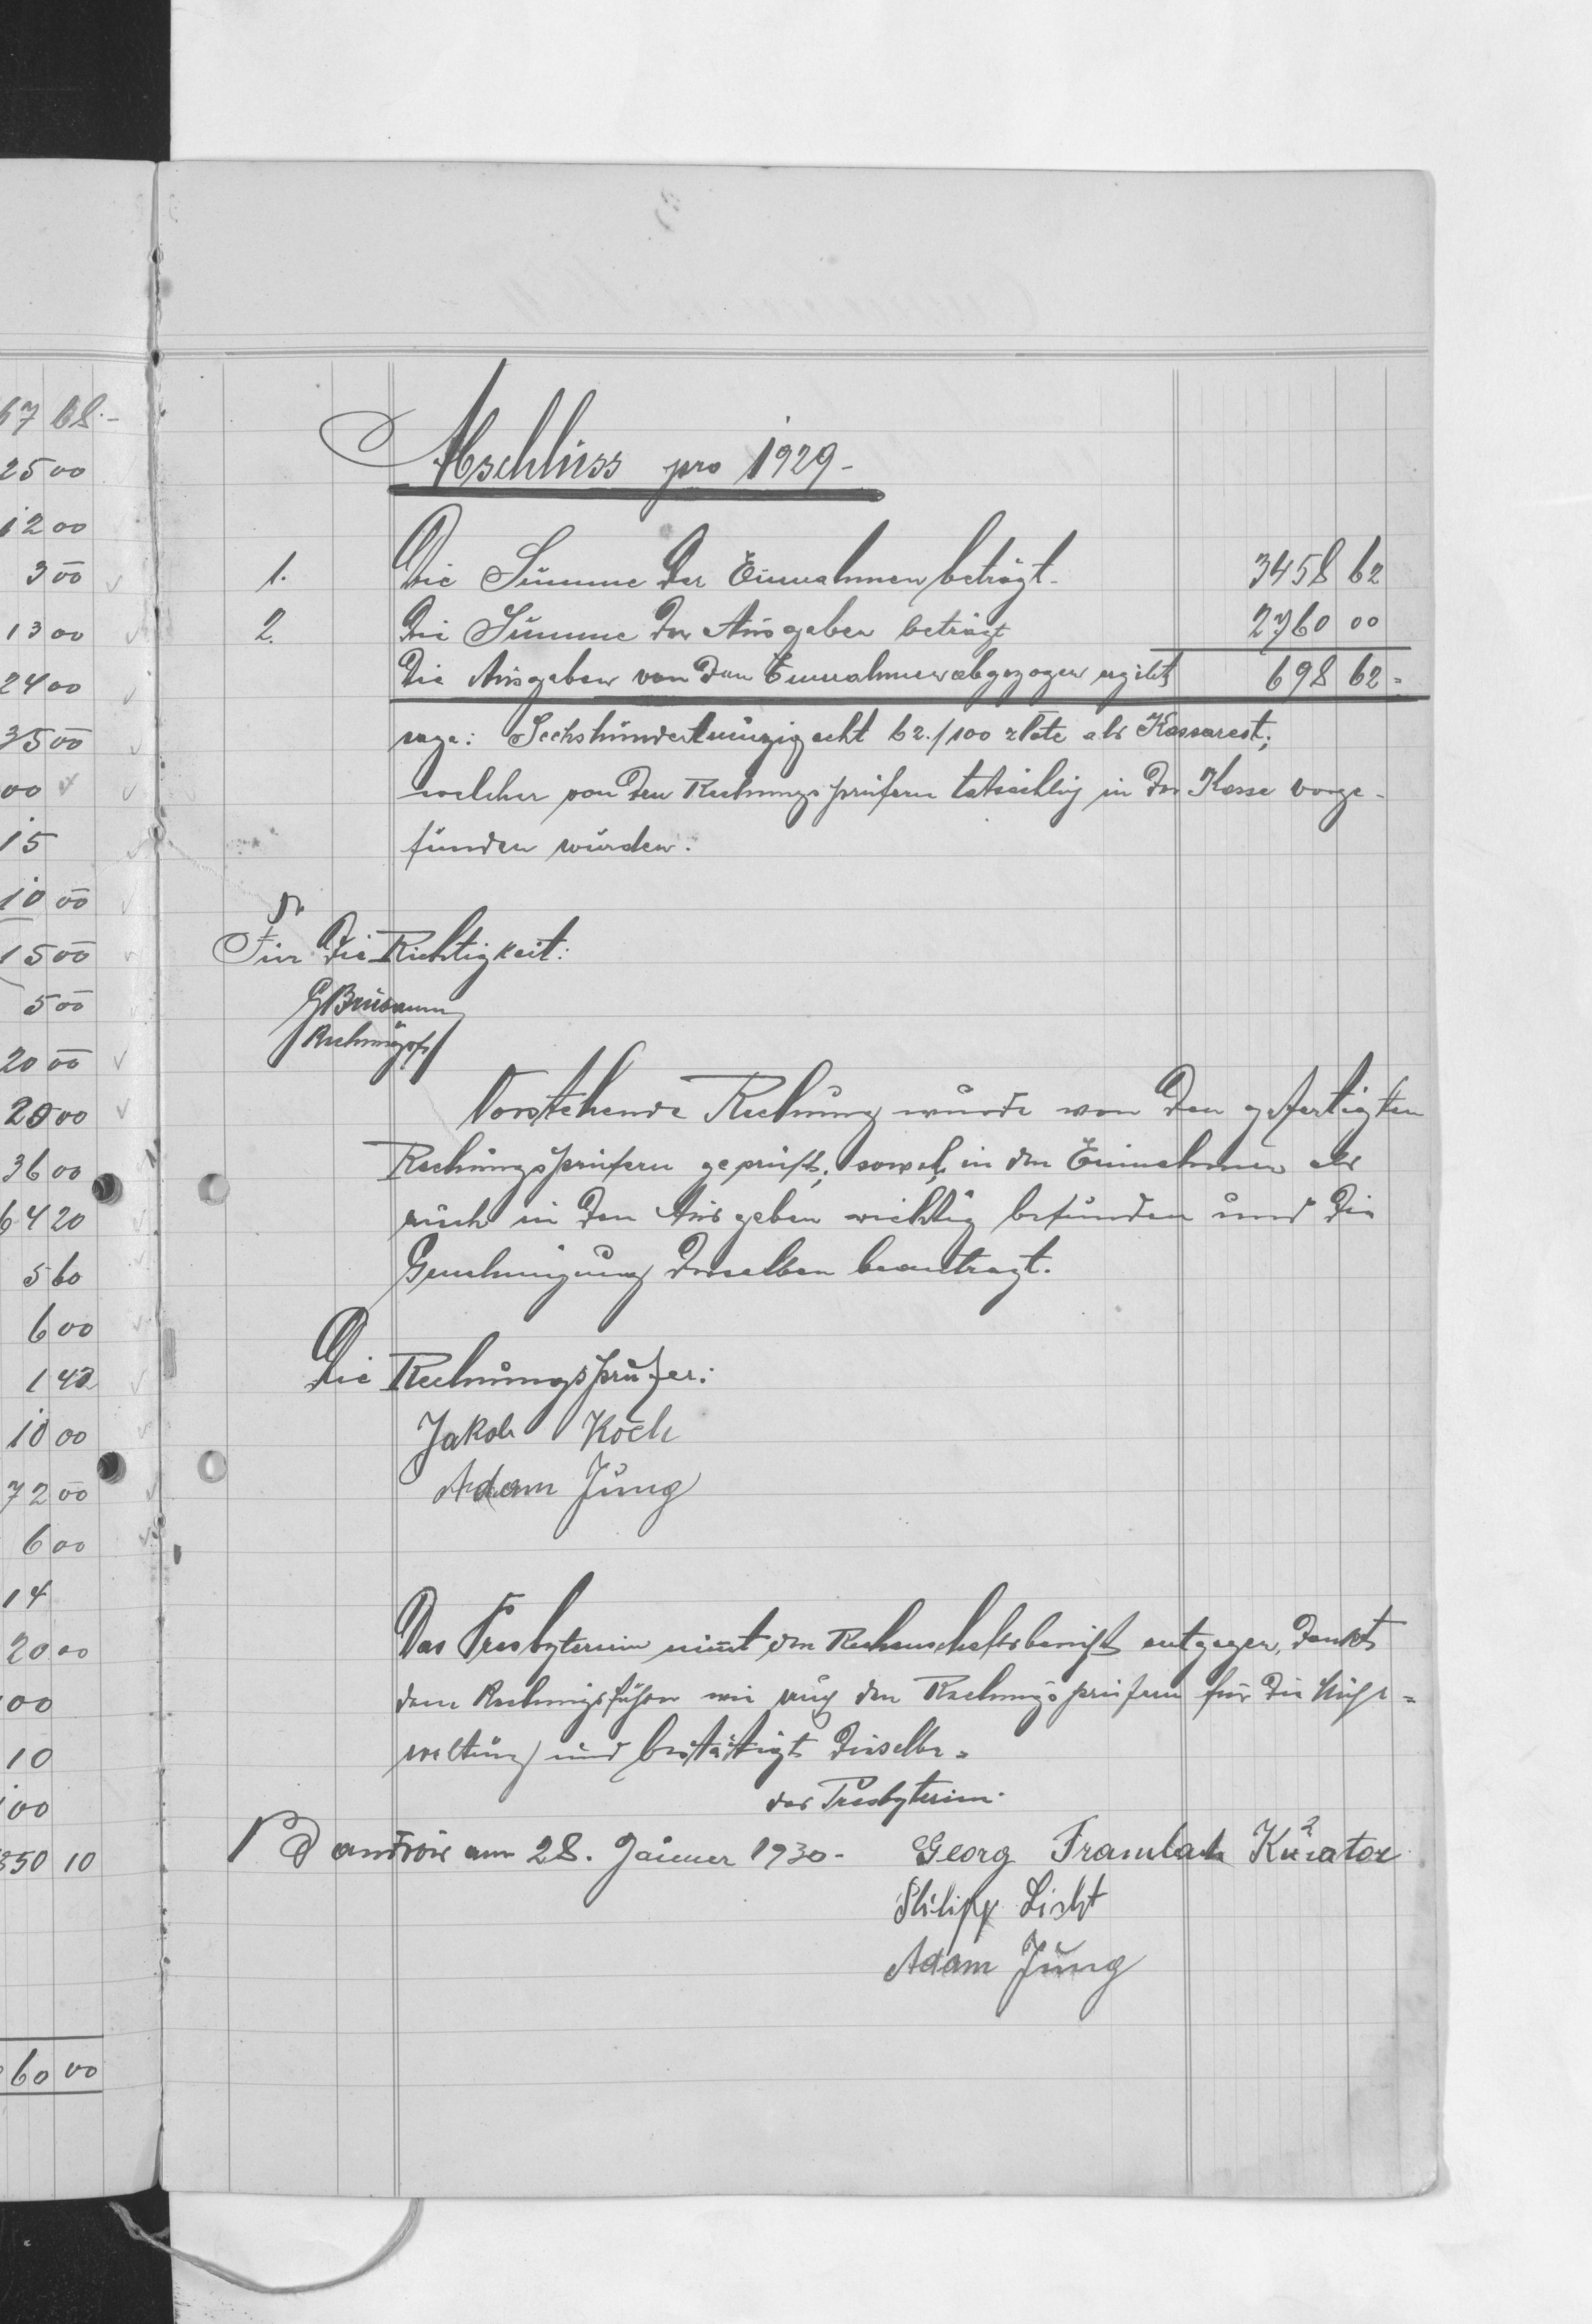 67 68.-
25 00
12 00
3 00
13 00
24 00
35 00
00
15
10 00
15 00
5 00
20 00
20 00
36 00
64 20
5 60
6 00
1 42
10 00
72 00
6 00
14
20 00
00
10
00
350 10
60 00
Abschluss pro 1929-
1. Die Summe der Einnahmen beträgt- 3458 62
2. Die Summe der Ausgaben beträgt 2760 00
Die Ausgaben von den Einnahmen abgezogen ergibt 698 62=
sage: Sechshundertneunzigacht 62./100 zlote als Kassarest;
welcher von den Rechnungsprüfern tatsächlich in der Kasse vorge-
funden wurden.
Für die Richtigkeit:
Rechnungsf
Vorstehende Rechnung wurde von den gefertigten
Rechnungsprüfern geprüft, sowohl in den Einnahmen als
auch in den Ausgaben richtig befunden und die
Genehmigung derselben beantragt.
Die Rechnungsprüfer:
Jakob Koch
Adam Jung
Das Presbyterium nimt den Rechenschaftsbericht entgegen, dankt
dem Rechnungsführer wie auch den Rechnungsprüfern für die Mühe=
waltung und bestätigt dieselbe=
das Presbyterium.
Bandrow am 28. Jänner 1930- Georg Frambach Kurator
Philipp Licht
Adam Jung